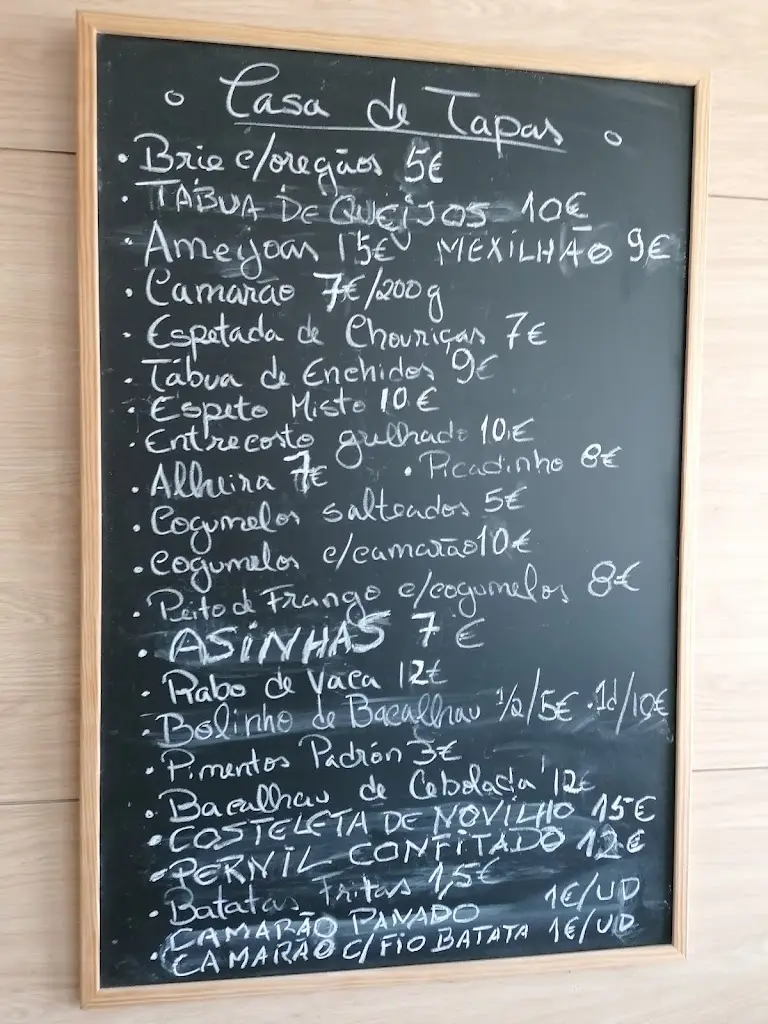 Casa de Tapas
• Brie c/oregãos 5€
• TÁBUA DE QUEIJOS 10€
• Ameijoas 15€ MEXILHÃO 9€
• Camarão 7€/200g
• Espetada de Chouriças 7€
• Tábua de Enchidos 9€
• Espeto Misto 10€
• Entrecosto grelhado 10€
• Alheira 7€ • Picadinho 8€
• Cogumelos salteados 5€
• Cogumelos c/camarão 10€
• Peito de Frango c/cogumelos 8€
• ASINHAS 7€
• Rabo de Vaca 12€
• Bolinho de Bacalhau 1/2/5€ • 1d/10€
• Pimentos Padrón 3€
• Bacalhau de Cebolada 12€
• COSTELETA DE NOVILHO 15€
• PERNIL CONFITADO 12€
• Batatas Fritas 1,5€
CAMARÃO PANADO 1€/UD
• CAMARÃO C/FIO BATATA 1€/UD